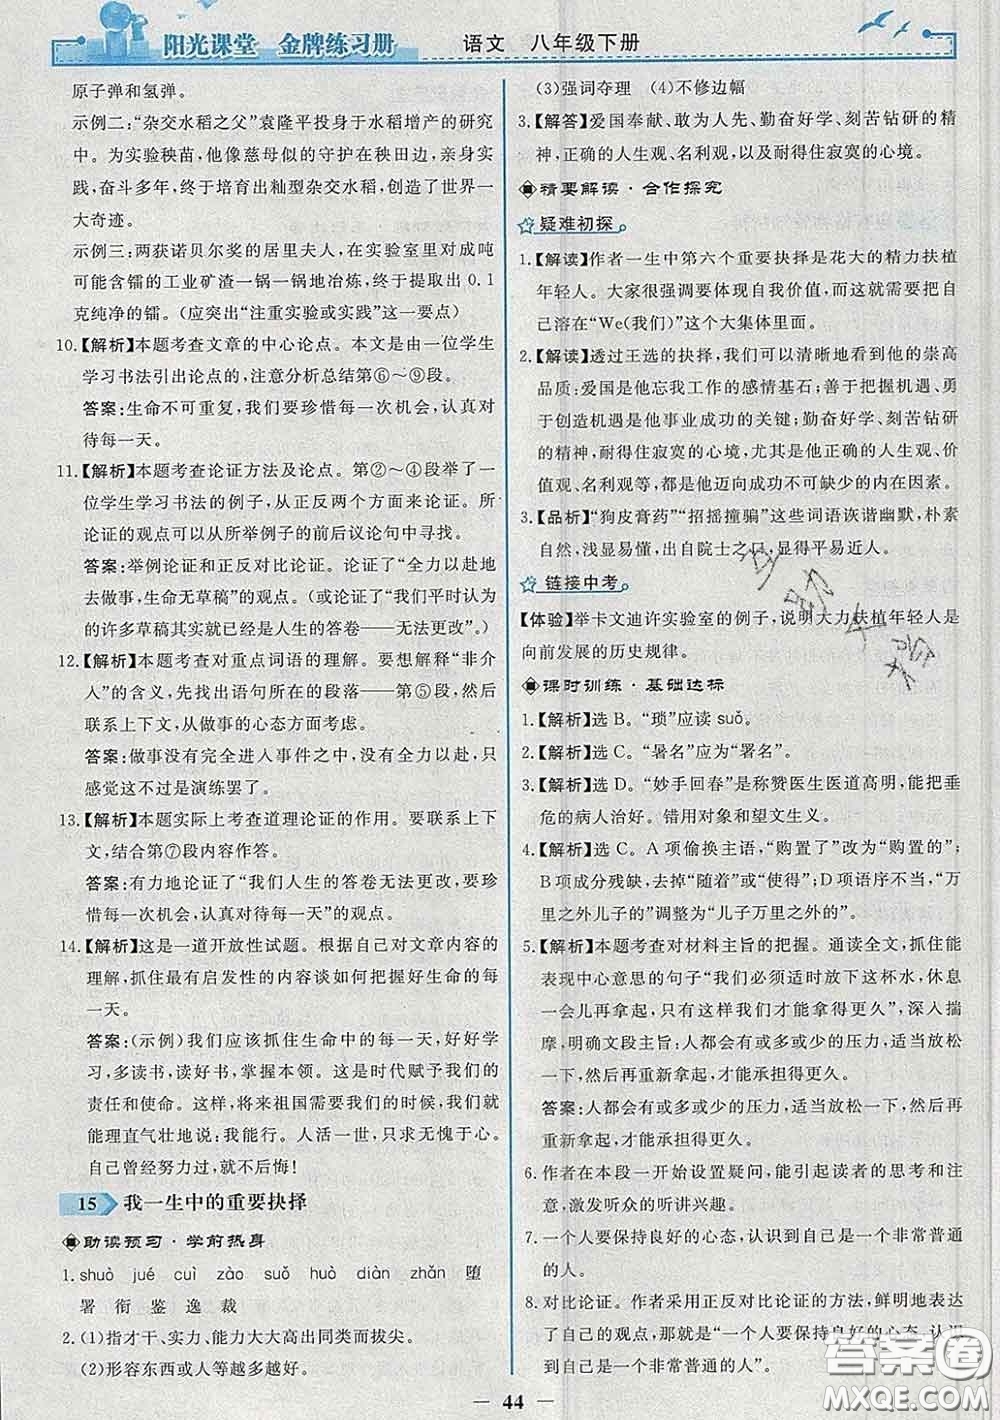 阳光课堂 金牌练习册 语文 八年级下册
原子弹和氢弹。
示例二：“杂交水稻之父”袁隆平投身于水稻增产的研究
中。为实验秧苗，他像慈母似的守护在秧田边，亲身实
践，奋斗多年，终于培育出籼型杂交水稻，创造了世界一
大奇迹。
示例三：两获诺贝尔奖的居里夫人，在实验室里对成吨
可能含镭的工业矿渣一锅一锅地冶炼，终于提取出 0.1
克纯净的镭。(应突出“注重实验或实践”这一要点)
10.【解析】本题考查文章的中心论点。本文是由一位学生
学习书法引出论点的，注意分析总结第⑥～⑨段。
答案：生命不可重复，我们要珍惜每一次机会，认真对
待每一天。
11.【解析】本题考查论证方法及论点。第②～④段举了一
位学生学习书法的例子，从正反两个方面来论证。所
论证的观点可以从所举例子的前后议论句中寻找。
答案：举例论证和正反对比论证。论证了“全力以赴地
去做事，生命无草稿”的观点。(或论证了“我们所认为
的许多草稿其实就已经是人生的答卷——无法更改”。)
12.【解析】本题考查对重点词语的理解。要想解释“非介
入”的含义，先找出语句所在的段落——第⑤段，然后
联系上下文，从做事的心态方面考虑。
答案：做事没有完全进入事件之中，没有全力以赴，只
感觉这不过是演练罢了。
13.【解析】本题实际上考查道理论证的作用。要联系上下
文，结合第⑦段内容作答。
答案：有力地论证了“我们人生的答卷无法更改，要珍
惜每一次机会，认真对待每一天”的观点。
14.【解析】这是一道开放性试题。根据自己对文章内容的
理解，抓住最有启发性的内容谈如何把握好生命的每
一天。
答案：(示例)我们应该抓住生命中的每一天，好好学
习，多读书，读好书，掌握本领。这是时代赋予我们的
责任和使命。这样，将来祖国需要我们的时候，我们就
能理直气壮地说：我能行。人活一世，只求无愧于心。
自己曾经努力过，就不后悔！
15 我一生中的重要抉择
助读预习·学前热身
1. shuò jué cuì zào suǒ huò diàn zhǎn 堕
署 衔 鉴 逸 裁
2. (1)指才干、实力、能力大大高出同类而拔尖。
(2)形容东西或人等越多越好。
(3)强词夺理 (4)不修边幅
3.【解答】爱国奉献、敢为人先、勤奋好学、刻苦钻研的精
神，正确的人生观、名利观，以及耐得住寂寞的心境。
精要解读·合作探究
疑难初探
1.【解读】作者一生中第六个重要抉择是花大的精力扶植
年轻人。大家很强调要体现自我价值，而这需要把自
己溶在“We(我们)”这个大集体里面。
2.【解读】透过王选的抉择，我们可以清晰地看到他的崇高
品质：爱国是他忘我工作的感情基石；善于把握机遇、勇
于创造机遇是他事业成功的关键；勤奋好学、刻苦钻研
的精神，耐得住寂寞的心境，尤其是正确的人生观、价
值观、名利观等，都是他迈向成功不可缺少的内在因素。
3.【品析】“狗皮膏药”“招摇撞骗”这些词语诙谐幽默，朴素
自然，浅显易懂，出自院士之口，显得平易近人。
链接中考
【体验】举卡文迪许实验室的例子，说明大力扶植年轻人是
向前发展的历史规律。
课时训练·基础达标
1.【解析】选 B。“琐”应读 suǒ。
2.【解析】选 C。“暑名”应为“署名”。
3.【解析】选 D。“妙手回春”是称赞医生医道高明，能把垂
危的病人治好。错用对象和望文生义。
4.【解析】选 C。A 项偷换主语，“购置了”改为“购置的”；
B 项成分残缺，去掉“随着”或“使得”；D 项语序不当，“万
里之外儿子的”调整为“儿子万里之外的”。
5.【解析】本题考查对材料主旨的把握。通读全文，抓住能
表现中心意思的句子“我们必须适时放下这杯水，休息
一会儿再拿起，只有这样我们才能拿得更久”，深入揣
摩，明确文段主旨：人都会有或多或少的压力，适当放松
一下，然后再重新拿起，才能承担得更久。
答案：人都会有或多或少的压力，适当放松一下，然后再
重新拿起，才能承担得更久。
6. 作者在本段一开始设置疑问，能引起读者的思考和注
意，激发听众的听讲兴趣。
7. 一个人要保持良好的心态，认识到自己是一个非常普通
的人。
8. 对比论证。作者采用正反对比论证的方法，鲜明地表达
了自己的观点，那就是“一个人要保持良好的心态，认识
到自己是一个非常普通的人”。
44
答案圈
MXQE.COM